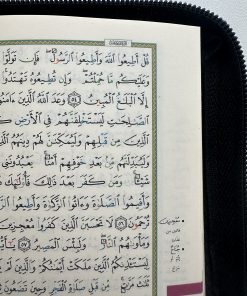 قُلْ أَطِيعُوا۟ ٱللَّهَ وَأَطِيعُوا۟ ٱلرَّسُولَ ۖ فَإِن تَوَلَّوْا۟
وَعَلَيْكُم مَّا حُمِّلْتُمْ ۖ وَإِن تُطِيعُوهُ تَهْتَدُوا۟ ۚ
إِلَّا ٱلْبَلَٰغُ ٱلْمُبِينُ ٥٤ وَعَدَ ٱللَّهُ ٱلَّذِينَ ءَامَنُوا۟
ٱلصَّٰلِحَٰتِ لَيَسْتَخْلِفَنَّهُمْ فِى ٱلْأَرْضِ
ٱلَّذِينَ مِن قَبْلِهِمْ وَلَيُمَكِّنَنَّ لَهُمْ دِينَهُمُ
وَلَيُبَدِّلَنَّهُم مِّنۢ بَعْدِ خَوْفِهِمْ أَمْنًا ۚ يَعْبُدُونَنِى
شَيْـًٔا ۚ وَمَن كَفَرَ بَعْدَ ذَٰلِكَ فَأُو۟لَٰٓئِكَ
وَأَقِيمُوا۟ ٱلصَّلَوٰةَ وَءَاتُوا۟ ٱلزَّكَوٰةَ وَأَطِيعُوا۟
تُرْحَمُونَ ٥٦ لَا تَحْسَبَنَّ ٱلَّذِينَ كَفَرُوا۟ مُعْجِزِينَ
وَمَأْوَىٰهُمُ ٱلنَّارُ ۖ وَلَبِئْسَ ٱلْمَصِيرُ ٥٧
لِيَسْتَـْٔذِنكُمُ ٱلَّذِينَ مَلَكَتْ أَيْمَٰنُكُمْ وَٱلَّذِينَ
ثَلَٰثَ مَرَّٰتٍ ۚ مِّن قَبْلِ صَلَوٰةِ ٱلْفَجْرِ وَحِينَ